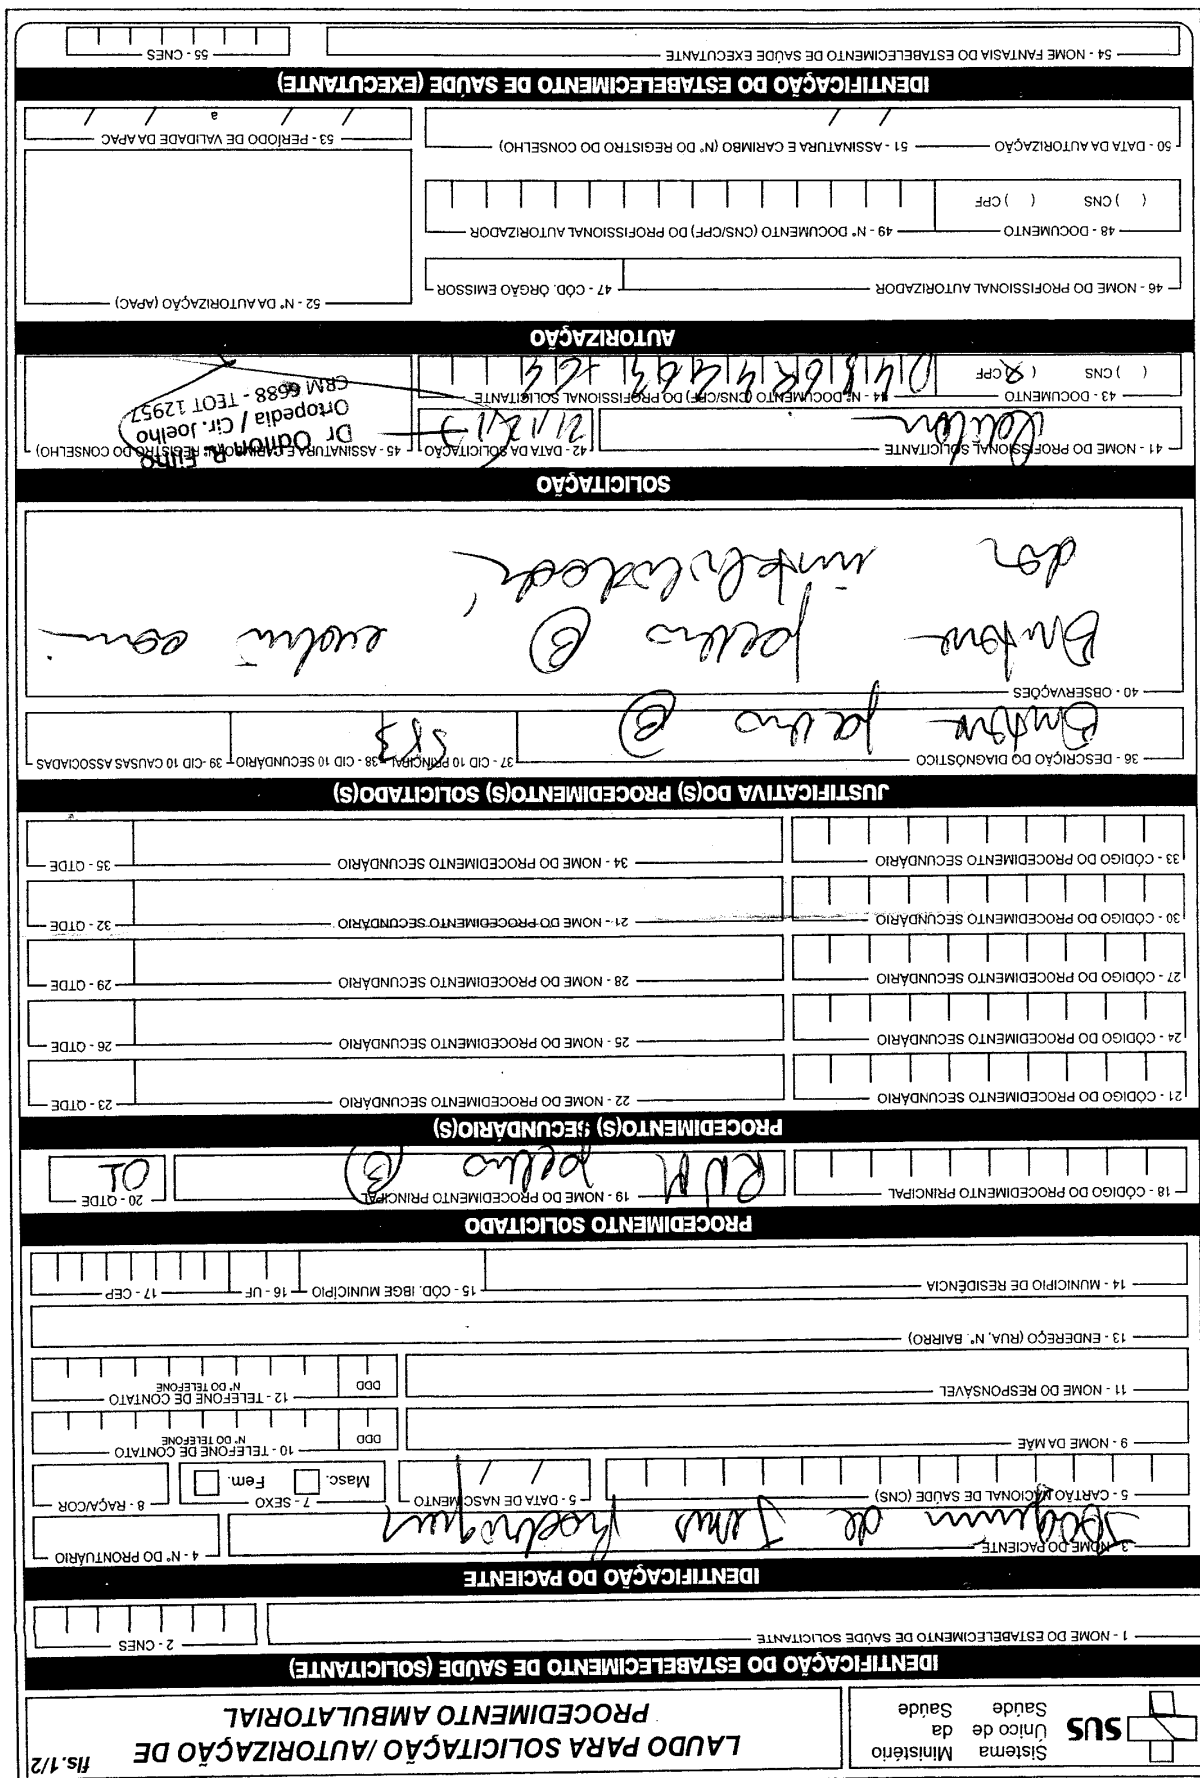 SUS
Sistema Único de Saúde
Ministério da Saúde
LAUDO PARA SOLICITAÇÃO/AUTORIZAÇÃO DE PROCEDIMENTO AMBULATORIAL
fls.1/2
IDENTIFICAÇÃO DO ESTABELECIMENTO DE SAÚDE (SOLICITANTE)
1 - NOME DO ESTABELECIMENTO DE SAÚDE SOLICITANTE
2 - CNES
IDENTIFICAÇÃO DO PACIENTE
3 - NOME DO PACIENTE
4 - Nº DO PRONTUÁRIO
Joaquim de Jesus Rodrigues
5 - CARTÃO NACIONAL DE SAÚDE (CNS)
5 - DATA DE NASCIMENTO
/ /
7 - SEXO
Masc. Fem.
8 - RAÇA/COR
9 - NOME DA MÃE
10 - TELEFONE DE CONTATO
DDD Nº DO TELEFONE
11 - NOME DO RESPONSÁVEL
12 - TELEFONE DE CONTATO
DDD Nº DO TELEFONE
13 - ENDEREÇO (RUA, Nº. BAIRRO)
14 - MUNICIPIO DE RESIDÊNCIA
15 - CÓD. IBGE MUNICÍPIO
16 - UF
17 - CEP
PROCEDIMENTO SOLICITADO
18 - CÓDIGO DO PROCEDIMENTO PRINCIPAL
19 - NOME DO PROCEDIMENTO PRINCIPAL
20 - QTDE
RNM joelho
01
PROCEDIMENTO(S) SECUNDÁRIO(S)
21 - CÓDIGO DO PROCEDIMENTO SECUNDÁRIO
22 - NOME DO PROCEDIMENTO SECUNDÁRIO
23 - QTDE
24 - CÓDIGO DO PROCEDIMENTO SECUNDÁRIO
25 - NOME DO PROCEDIMENTO SECUNDÁRIO
26 - QTDE
27 - CÓDIGO DO PROCEDIMENTO SECUNDÁRIO
28 - NOME DO PROCEDIMENTO SECUNDÁRIO
29 - QTDE
30 - CÓDIGO DO PROCEDIMENTO SECUNDÁRIO
21 - NOME DO PROCEDIMENTO SECUNDÁRIO
32 - QTDE
33 - CÓDIGO DO PROCEDIMENTO SECUNDÁRIO
34 - NOME DO PROCEDIMENTO SECUNDÁRIO
35 - QTDE
JUSTIFICATIVA DO(S) PROCEDIMENTO(S) SOLICITADO(S)
36 - DESCRIÇÃO DO DIAGNÓSTICO
37 - CID 10 PRINCIPAL
38 - CID 10 SECUNDÁRIO
39 - CID 10 CAUSAS ASSOCIADAS
Entorse joelho
S83
40 - OBSERVAÇÕES
Entorse joelho evolui com
dor instabilidade
SOLICITAÇÃO
41 - NOME DO PROFISSIONAL SOLICITANTE
42 - DATA DA SOLICITAÇÃO
45 - ASSINATURA E CARIMBO (Nº REGISTRO DO CONSELHO)
21/12/17
Dr Odilon R. Filho
Ortopedia / Cir. Joelho
CRM 6688 - TEOT 12957
43 - DOCUMENTO
( ) CNS (X) CPF
44 - Nº DOCUMENTO (CNS/CPF) DO PROFISSIONAL SOLICITANTE
AUTORIZAÇÃO
46 - NOME DO PROFISSIONAL AUTORIZADOR
47 - CÓD. ÓRGÃO EMISSOR
52 - Nº DA AUTORIZAÇÃO (APAC)
48 - DOCUMENTO
( ) CNS ( ) CPF
49 - Nº DOCUMENTO (CNS/CPF) DO PROFISSIONAL AUTORIZADOR
50 - DATA DA AUTORIZAÇÃO
51 - ASSINATURA E CARIMBO (Nº DO REGISTRO DO CONSELHO)
/ /
53 - PERÍODO DE VALIDADE DA APAC
/ / a / /
IDENTIFICAÇÃO DO ESTABELECIMENTO DE SAÚDE (EXECUTANTE)
54 - NOME FANTASIA DO ESTABELECIMENTO DE SAÚDE EXECUTANTE
55 - CNES